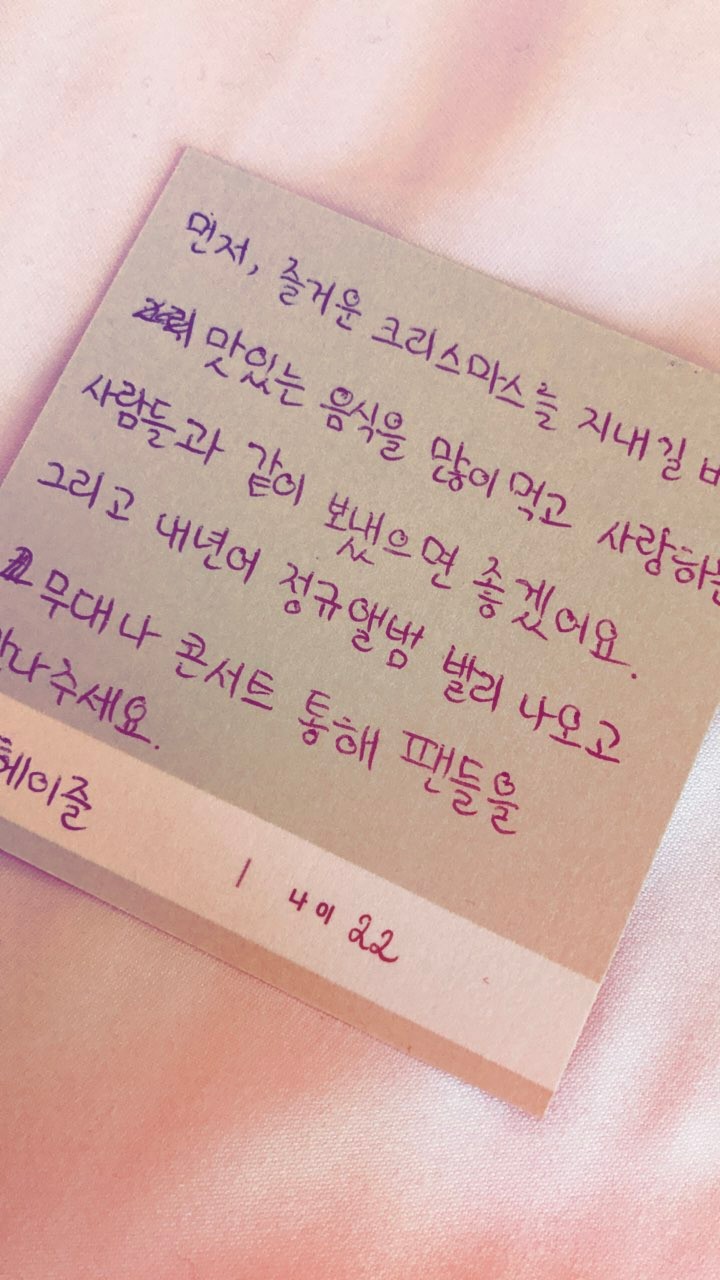 먼저, 즐거운 크리스마스를 지내길
맛있는 음식을 많이 먹고 사랑하는
사람들과 같이 보냈으면 좋겠어요.
그리고 내년에 정규앨범 빨리 나오고
무대나 콘서트 통해 팬들을
만나주세요.
헤이즐